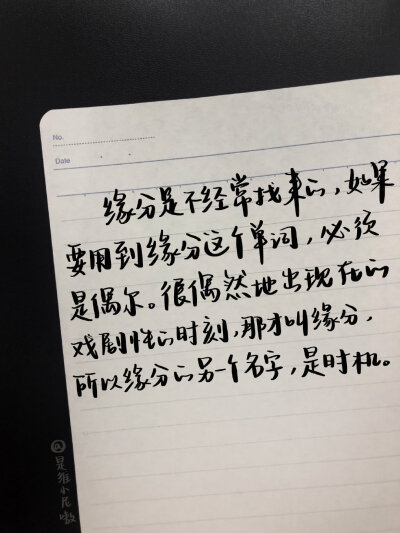 No.
Date
缘分是不经常找来的,如果
要用到缘分这个单词,必须
是偶尔。很偶然地出现在的
戏剧性的时刻,那才叫缘分,
所以缘分的另一个名字,是时机。
@是维小尼嗷